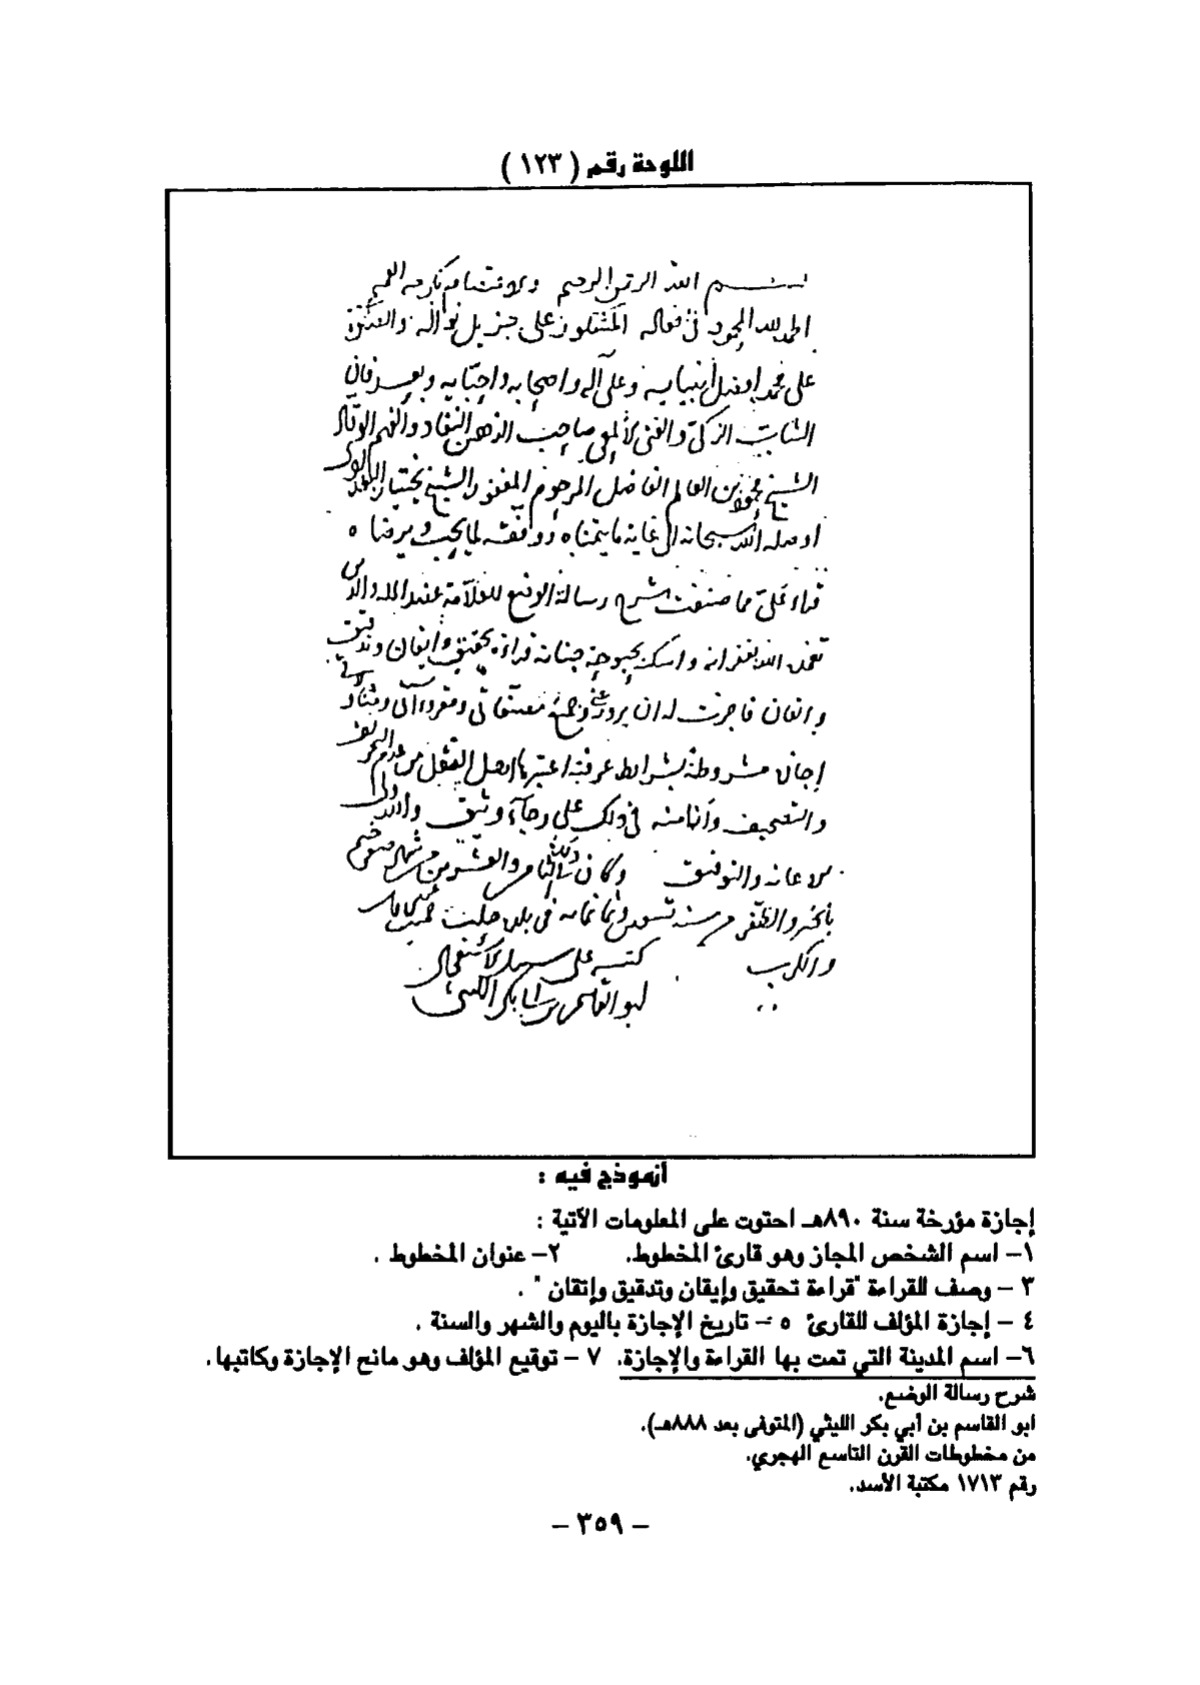 اللوحة رقم ( ١٢٣ )
بسم الله الرحمن الرحيم
الحمد لله المحمود في فعاله المشكور على جزيل نواله والصلوة
على محمد افضل انبيايه وعلى آله واصحابه واحبايه وبعد فان
الشاب الزكي والفتى الألمعي صاحب الذهن النقاد والفهم الوقاد
الشيخ محمود بن العالم الفاضل المرحوم المغفور الشيخ بختيار
اوصله الله سبحانه الى غاية ما يتمناه ووفقه لما يحب ويرضاه
قراء علي مما صنفت شرح رسالة الوضع للعلامة عضد الملة والدين
تغمده الله بغفرانه واسكنه بحبوحة جنانه قراءة تحقيق وايقان وتدقيق
واتقان فاجزت له ان يروي عني جميع مصنفاتي ومقروءاتي
إجازة مشروطة بشرائط عرفية اعتبرها اهل النقل من عدم التحريف
والتصحيف وأنا منه في ذلك على رجآء وثيق والله ولي
الاعانة والتوفيق وكان ذلك الثامن والعشرين من شهر صفر ختم
بالخير والظفر من سنة تسعين وثمانمائة في بلدة حلب
والكرب كتبه على سبيل الاستعجال
ابو القاسم بن ابي بكر الليثي
أنموذج فيه :
إجازة مؤرخة سنة ٨٩٠هـ احتوت على المعلومات الآتية :
١– اسم الشخص المجاز وهو قارئ المخطوط. ٢– عنوان المخطوط .
٣ – وصف القراءة "قراءة تحقيق وإيقان وتدقيق وإتقان " .
٤ – إجازة المؤلف للقارئ ٥ – تاريخ الإجازة باليوم والشهر والسنة .
٦– اسم المدينة التي تمت بها القراءة والإجازة. ٧ – توقيع المؤلف وهو مانح الإجازة وكاتبها.
شرح رسالة الوضع.
ابو القاسم بن أبي بكر الليثي (المتوفى بعد ٨٨٨هـ).
من مخطوطات القرن التاسع الهجري.
رقم ١٧١٣ مكتبة الأسد.
– ٣٥٩ –